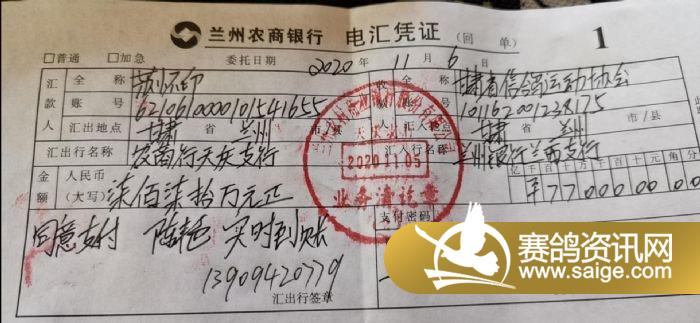 兰州农商银行 电汇凭证 (回单) 1
□普通 □加急 委托日期 2020年11月6日
汇款人 全称 收款人 全称 甘肃省信鸽运动协会
账号 621061000010154165 5 账号 101162001238175
汇出地点 甘肃省兰州市/县 汇入地点 甘肃省兰州市/县
汇出行名称 农商行天庆支行 汇入行名称 兰州银行兰西支行
金额 人民币(大写) 柒佰柒拾万元正 亿千百十万千百十元角分
¥770000000
2020.11.05
业务清讫章
支付密码
同意支付 实时到账
13909420779
汇出行签章
赛鸽资讯网
www.saige.com